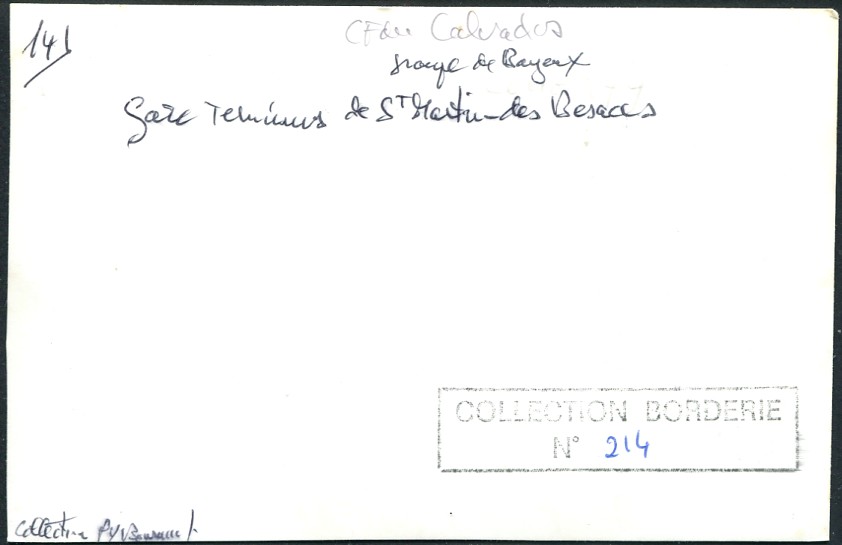 141
CF du Calvados
groupe de Bayeux
Gare Terminus de St Martin-des Besaces
COLLECTION BORDERIE
N° 214
Collection